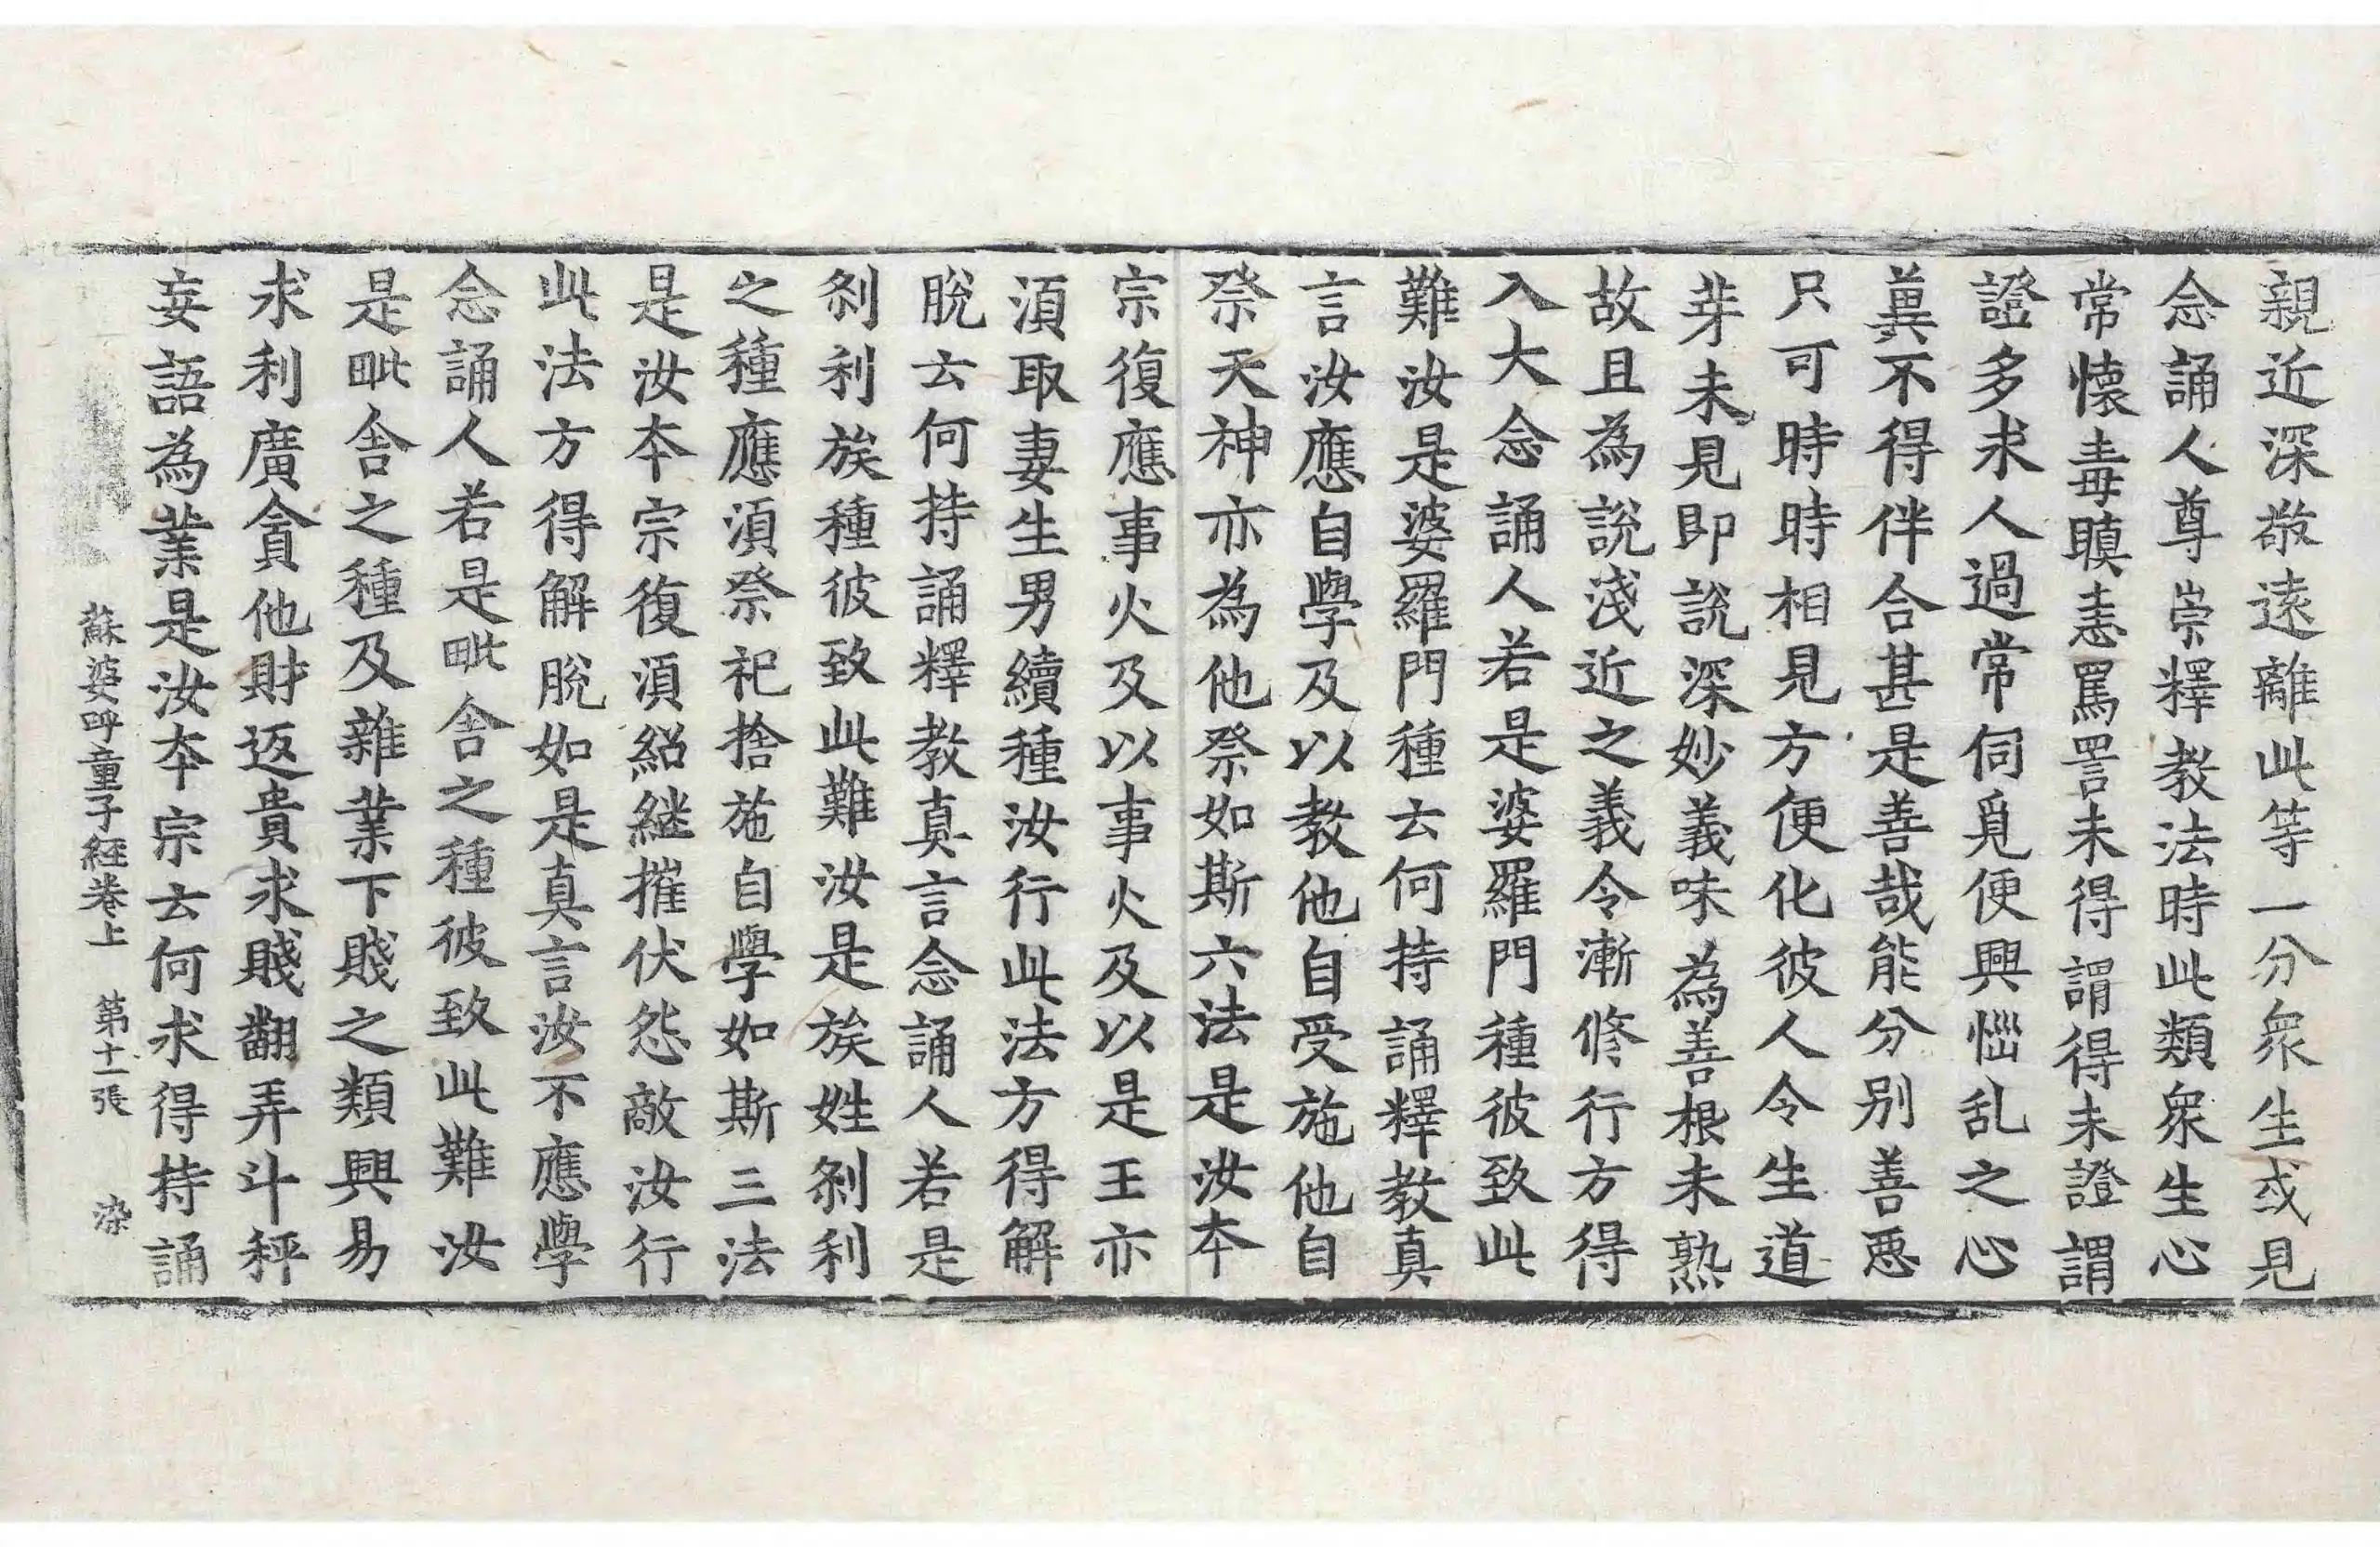 親近深敬遠離此等一分衆生或見
念誦人尊崇釋教法時此類衆生心
常懷毒瞋恚罵詈未得謂得未證謂
證多求人過常伺覓便興惱乱之心
兾不得伴合甚是善哉能分別善惡
只可時時相見方便化彼人令生道
芽未見即說深妙義味為善根未熟
故且為說淺近之義令漸修行方得
入大念誦人若是婆羅門種彼致此
難汝是婆羅門種云何持誦釋教真
言汝應自學及以教他自受施他自
祭天神亦為他祭如斯六法是汝本
宗復應事火及以事火及以是王亦
湏取妻生男續種汝行此法方得解
脫云何持誦釋教真言念誦人若是
刹利族種彼致此難汝是族姓刹利
之種應湏祭祀捨施自學如斯三法
是汝本宗復湏紹継摧伏怨敵汝行
此法方得解脫如是真言汝不應學
念誦人若是毗舎之種彼致此難汝
是毗舎之種及雜業下賤之類興易
求利廣貪他財返貴求賤翻弄斗秤
妄語為業是汝本宗云何求得持誦
蘇婆呼童子経卷上　第十一張　染